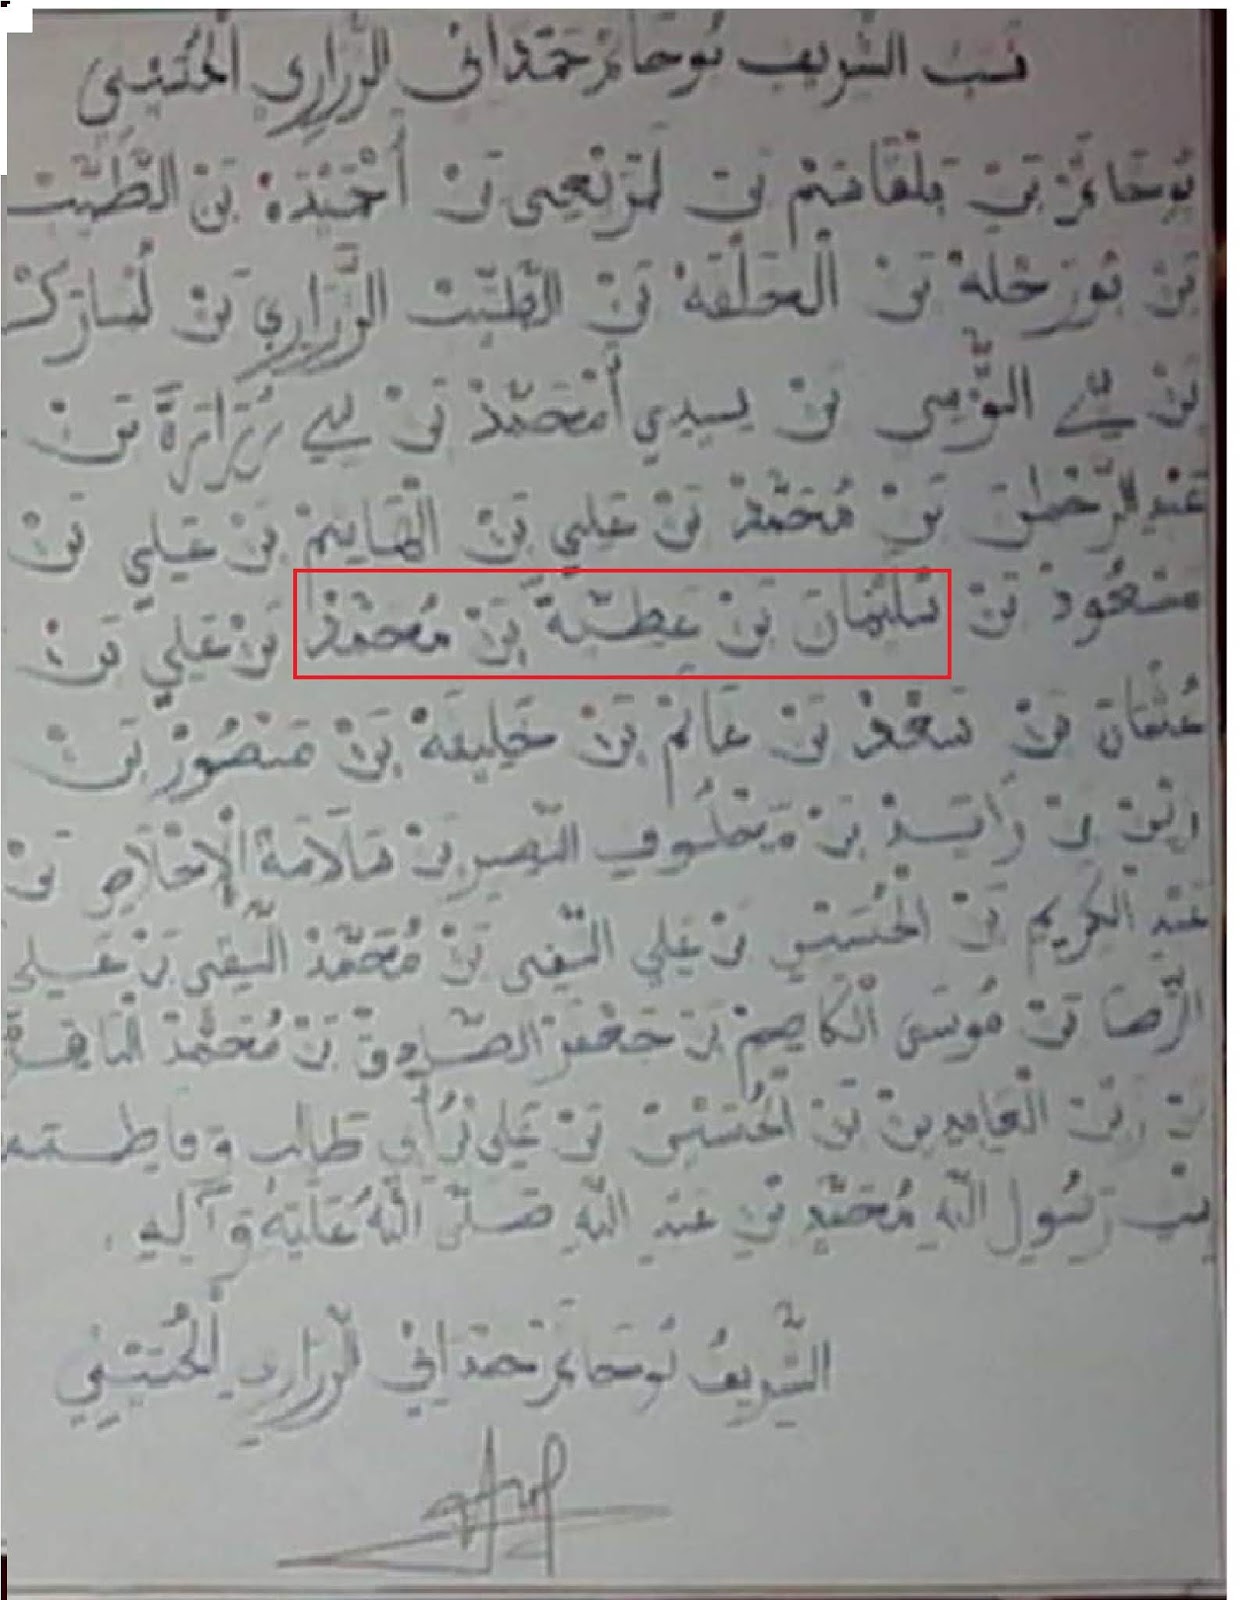 نسب الشريف بوحائز حمداني الزراري الحُسَيني
بن بلقاسم بن بن أحميده بن الطَّيِّب
بن بورحله بن بن الطَّيِّب الزَّرَاري بن لمبارك
بن بن سيدي أمْحَمَّدْ بن سي زرارة بن
عبد الرّحمان بن مُحَمَّدْ بن علي بن الهاشم بن علي بن
مسعود بن سليمان بن عطيّة بن مُحمّدْ بن علي بن
عثمان بن سعد بن غانم بن خليفة بن منصور بن
بن راشد بن مخلوف النصير بن سلامة الإخلاص بن
عبد الكريم بن الحُسَين بن علي النقي بن مُحَمَّدْ التقي بن علي
الرّضا بن مُوسَى الكاظم بن جعفر الصّادق بن مُحَمَّدْ الباقر
بن زين العابدين بن الحُسَين بن علي بن أبي طالب وفاطمة
بنت رَسُول اللّه مُحَمَّدٍ بن عبد اللّه صلّى اللّه عليه وآله .
الشّريف بوحائز حمداني الزراري الحُسَيني